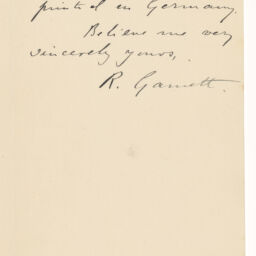 printed in Germany.
Believe me very
sincerely yours,
R. Garnett.